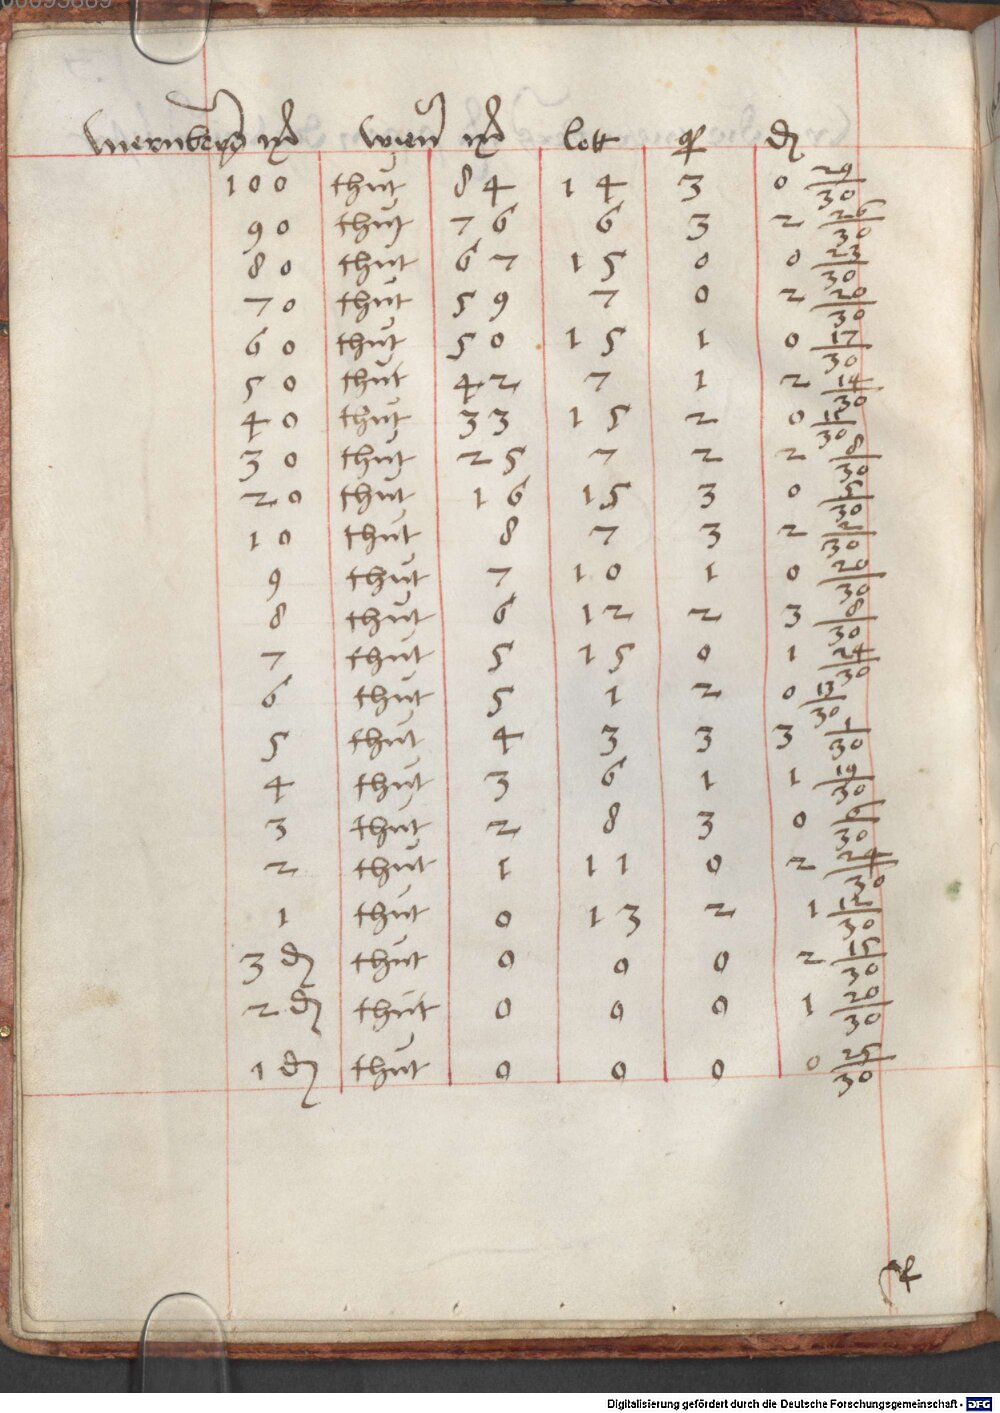 Nurnberg m wien m lott q d
100 thut 84 14 3 0 29/30
90 thut 76 6 3 2 26/30
80 thut 67 15 0 0 23/30
70 thut 59 7 0 2 20/30
60 thut 50 15 1 0 17/30
50 thut 42 7 1 2 14/30
40 thut 33 15 2 0 11/30
30 thut 25 7 2 2 8/30
20 thut 16 15 3 0 5/30
10 thut 8 7 3 2 2/30
9 thut 7 10 1 0 20/30
8 thut 6 12 2 3 8/30
7 thut 5 15 0 1 24/30
6 thut 5 1 2 0 13/30
5 thut 4 3 3 3 1/30
4 thut 3 6 1 1 19/30
3 thut 2 8 3 0 6/30
2 thut 1 11 0 2 24/30
1 thut 0 13 2 1 12/30
3 d thut 0 0 0 2 15/30
2 d thut 0 0 0 1 20/30
1 d thut 0 0 0 0 25/30
Digitalisierung gefördert durch die Deutsche Forschungsgemeinschaft - DFG